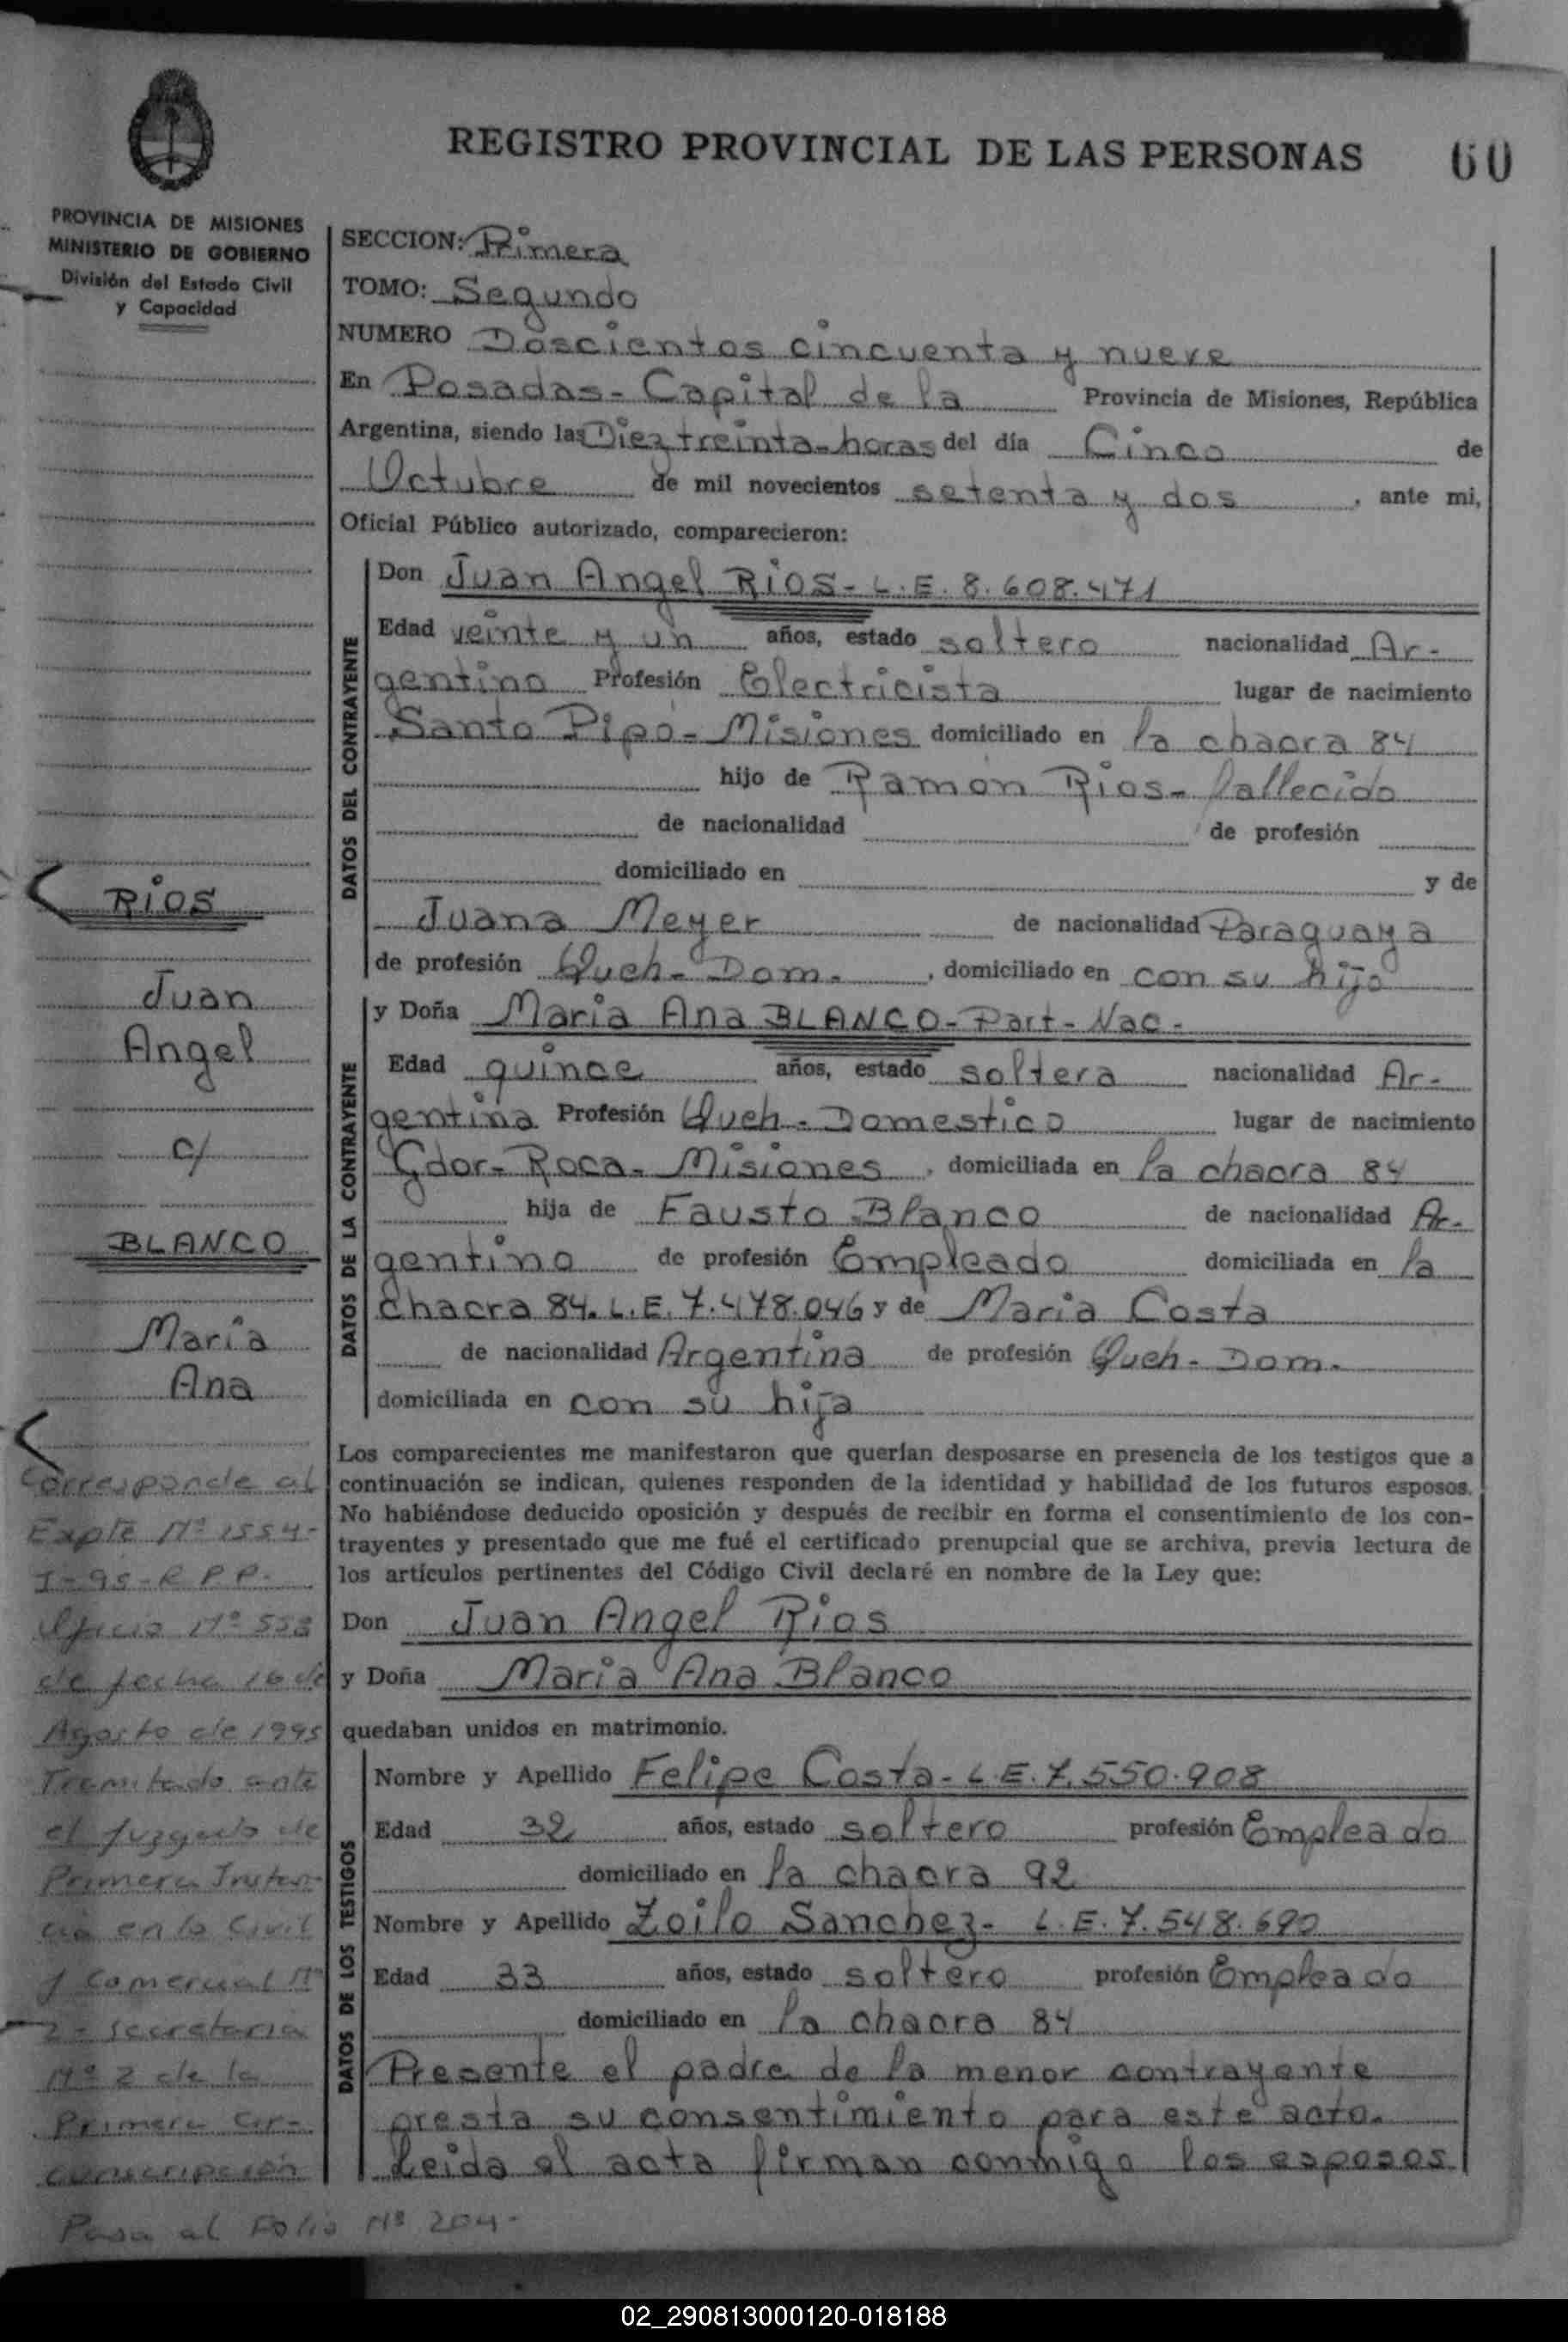 REGISTRO PROVINCIAL DE LAS PERSONAS 60
PROVINCIA DE MISIONES
MINISTERIO DE GOBIERNO
División del Estado Civil
y Capacidad
SECCION: Primera
TOMO: Segundo
NUMERO Doscientos cincuenta y nueve
En Posadas - Capital de la Provincia de Misiones, República
Argentina, siendo las Diez treinta - horas del día Cinco de
Octubre de mil novecientos setenta y dos, ante mi,
Oficial Público autorizado, comparecieron:
DATOS DEL CONTRAYENTE
Don Juan Angel RIOS - L.E. 8.608.471
Edad veinte y un años, estado soltero nacionalidad Ar-
gentino Profesión Electricista lugar de nacimiento
Santo Pipó - Misiones domiciliado en la chacra 84
hijo de Ramón Rios - fallecido
de nacionalidad de profesión
domiciliado en y de
Juana Meyer de nacionalidad Paraguaya
de profesión Queh - Dom. , domiciliado en con su hijo
DATOS DE LA CONTRAYENTE
y Doña Maria Ana BLANCO - Part - Nac -
Edad quince años, estado soltera nacionalidad Ar-
gentina Profesión Queh - Domestico lugar de nacimiento
Gdor - Roca - Misiones , domiciliada en la chacra 84
hija de Fausto Blanco de nacionalidad Ar-
gentino de profesión Empleado domiciliada en la
chacra 84. L.E. 7.478.046 y de Maria Costa
de nacionalidad Argentina de profesión Queh - Dom.
domiciliada en con su hija
Los comparecientes me manifestaron que querían desposarse en presencia de los testigos que a
continuación se indican, quienes responden de la identidad y habilidad de los futuros esposos.
No habiéndose deducido oposición y después de recibir en forma el consentimiento de los con-
trayentes y presentado que me fué el certificado prenupcial que se archiva, previa lectura de
los artículos pertinentes del Código Civil declaré en nombre de la Ley que:
Don Juan Angel Rios
y Doña Maria Ana Blanco
quedaban unidos en matrimonio.
DATOS DE LOS TESTIGOS
Nombre y Apellido Felipe Costa - L.E. 7.550.908
Edad 32 años, estado soltero profesión Empleado
domiciliado en la chacra 92
Nombre y Apellido Zoilo Sanchez - L.E. 7.548.690
Edad 33 años, estado soltero profesión Empleado
domiciliado en la chacra 84
Presente el padre de la menor contrayente
presta su consentimiento para este acto.
Leida el acta firman conmigo los esposos
RIOS
Juan
Angel
c/
BLANCO
Maria
Ana
Corresponde al
Expte Nº 1554-
I-95-R P P.
Oficio Nº 553
de fecha 16 de
Agosto de 1995
Tramitado ante
el Juzgado de
Primera Instan-
cia en lo Civil
y Comercial Nº
2 - secretaria
Nº 2 de la
Primera Cir-
cunscripción
Pasa al Folio Nº 204-
02_290813000120-018188